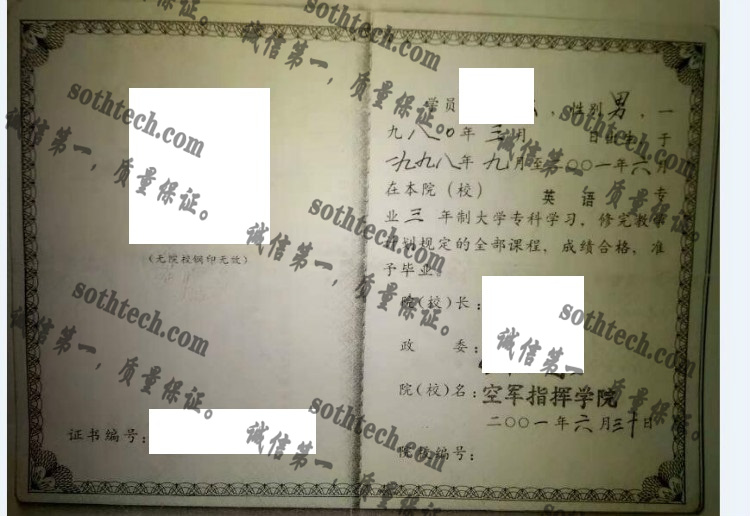 (无院校钢印无效)
证书编号:
学员
,性别男,一
九八〇年三月 日出生,于
一九九八年九月至二〇〇一年六月
在本院(校) 英语 专
业三年制大学专科学习,修完教学
计划规定的全部课程,成绩合格,准
予毕业。
院(校)长:
政 委:
院(校)名:空军指挥学院
二〇〇一年六月三十日
院校编号:
sothtech.com
诚信第一,质量保证。
sothtech.com
诚信第一,质量保证。
sothtech.com
诚信第一,质量保证。
sothtech.com
诚信第一,质量保证。
sothtech.com
诚信第一,质量保证。
sothtech.com
诚信第一
sothtech.com
诚信第一,质量保证。
sothtech.com
诚信第一